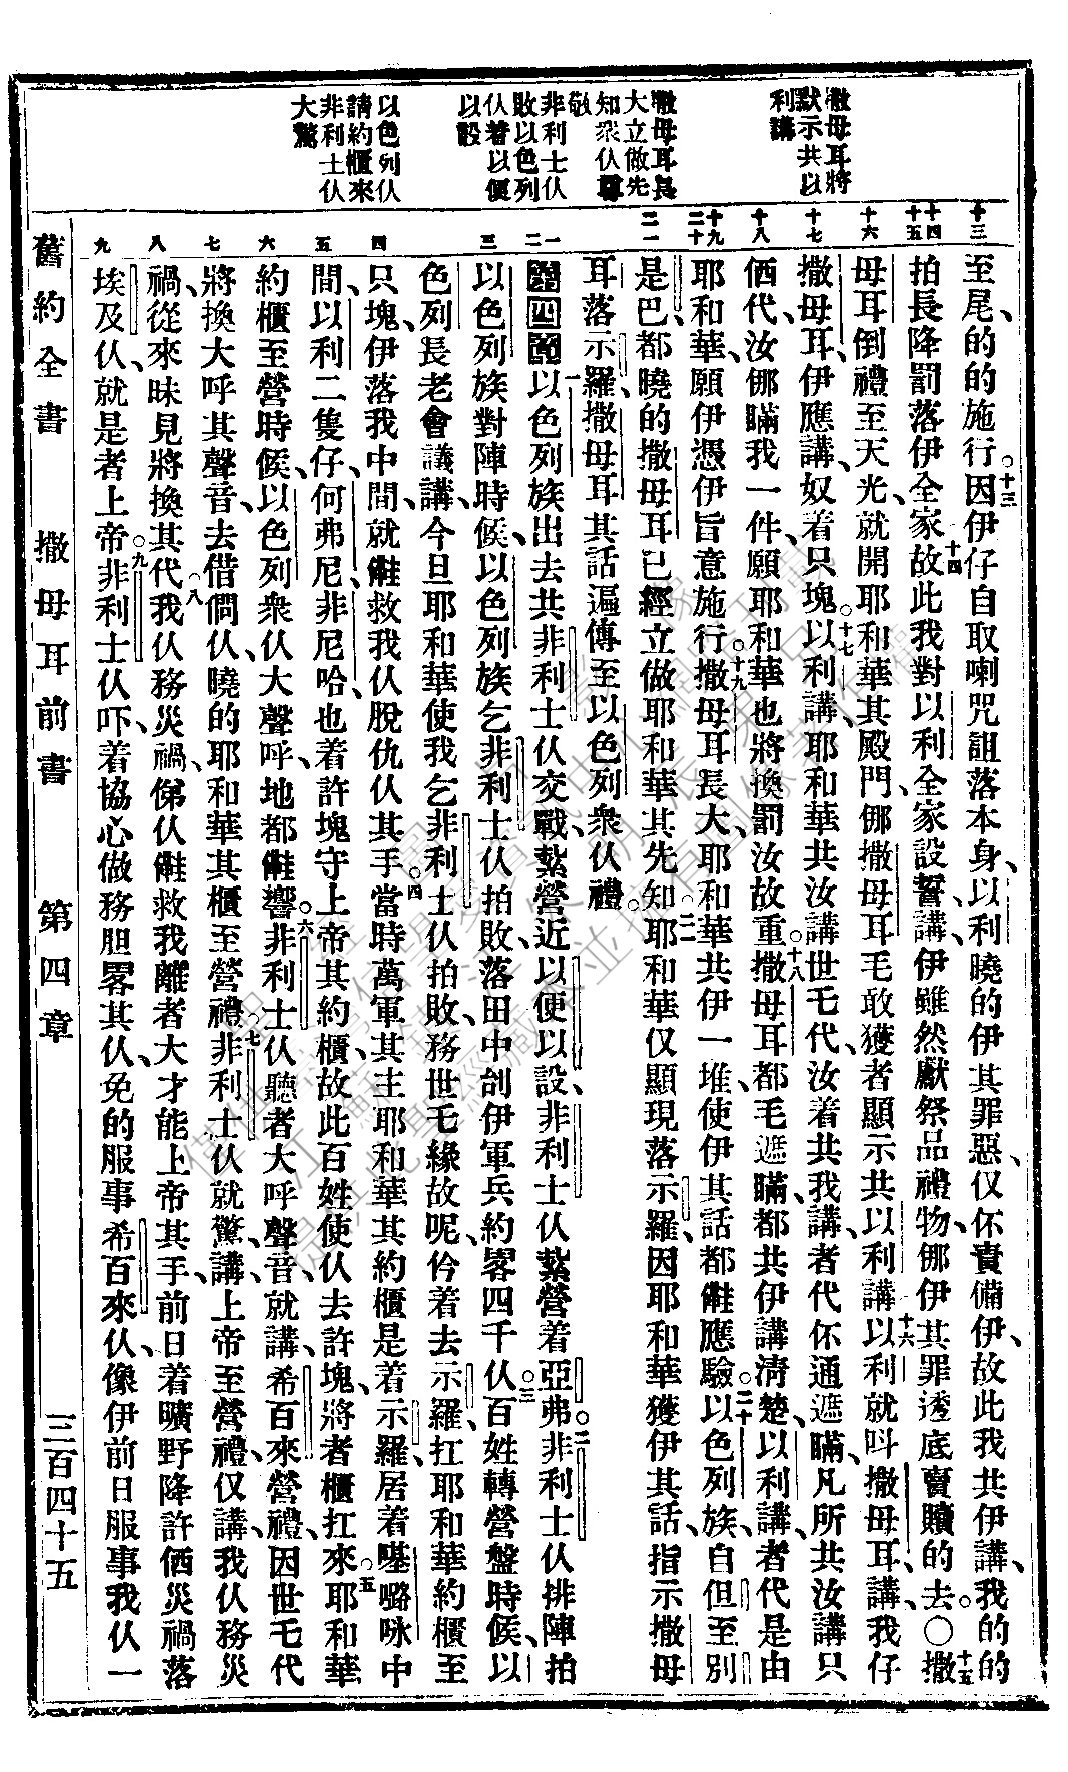 撒母耳將
默示共以
利講
撒母耳長
大立做先
知衆仫尊
敬
非利士仫
敗以色列
仫着以便
以設
以色列仫
請約櫃來
非利士仫
大驚
十三 十四 十五 十六 十七 十八 十九 二十 二一 一 二 三 四 五 六 七 八 九
至尾、的的施行。十三因伊仔自取喇咒詛落本身、以利曉的伊其罪惡、仅伓責備伊、故此我共伊講、我的的
拍長降罰落伊全家、十四故此我對以利全家設誓講、伊雖然獻祭品禮物、挪伊其罪透底賣贖的去。〇十五撒
母耳倒禮至天光、就開耶和華其殿門、挪撒母耳毛敢獲者顯示共以利講、十六以利就呌撒母耳講、我仔
撒母耳、伊應講、奴着只塊。十七以利講、耶和華共汝講世乇代、汝着共我講、者代伓通遮瞞、凡所共汝講只
価代、汝挪瞞我一件、願耶和華也將換罰汝故重。十八撒母耳都毛遮瞞、都共伊講淸楚、以利講、者代是由
耶和華、願伊憑伊旨意施行。十九撒母耳長大、耶和華共伊一堆、使伊其話都𠆧應驗。二十以色列族、自但至別
是巴、都曉的撒母耳已經立做耶和華其先知。二一耶和華仅顯現落示羅、因耶和華獲伊其話、指示撒母
耳落示羅、撒母耳其話遍傳至以色列衆仫禮。
第四章 一以色列族出去共非利士仫交戰、紮營近以便以設、非利士仫紮營着亞弗。二非利士仫排陣拍
以色列族、對陣時候、以色列族乞非利士仫拍敗、落田中刣伊軍兵約畧四千仫。三百姓轉營盤時候、以
色列長老會議講、今旦耶和華使我乞非利士仫拍敗、務世乇緣故呢、伱着去示羅、扛耶和華約櫃至
只塊、伊落我中間、就𠆧救我仫脫仇仫其手。四當時萬軍其主耶和華其約櫃是着示羅、居着𠸄嚕咏中
間、以利二隻仔、何弗尼、非尼哈、也着許塊守上帝其約櫃、故此百姓使仫去許塊、將者櫃扛來。五耶和華
約櫃至營時候、以色列衆仫大聲呼、地都𠆧響。六非利士仫聽者大呼聲音、就講、希百來營禮、因世乇代
將換大呼其聲音、去借問仫曉的耶和華其櫃至營禮。七非利士仫就驚講、上帝至營禮、仅講、我仫務災
禍、從來昧見將換其代。八我仫務災禍、俤仫𠆧救我離者大才能上帝其手、前日着曠野降許価災禍落
埃及仫、就是者上帝。九非利士仫吓、着協心做務胆畧其仫、免的服事希百來仫、像伊前日服事我仫一
舊約全書　撒母耳前書　第四章　三百四十五